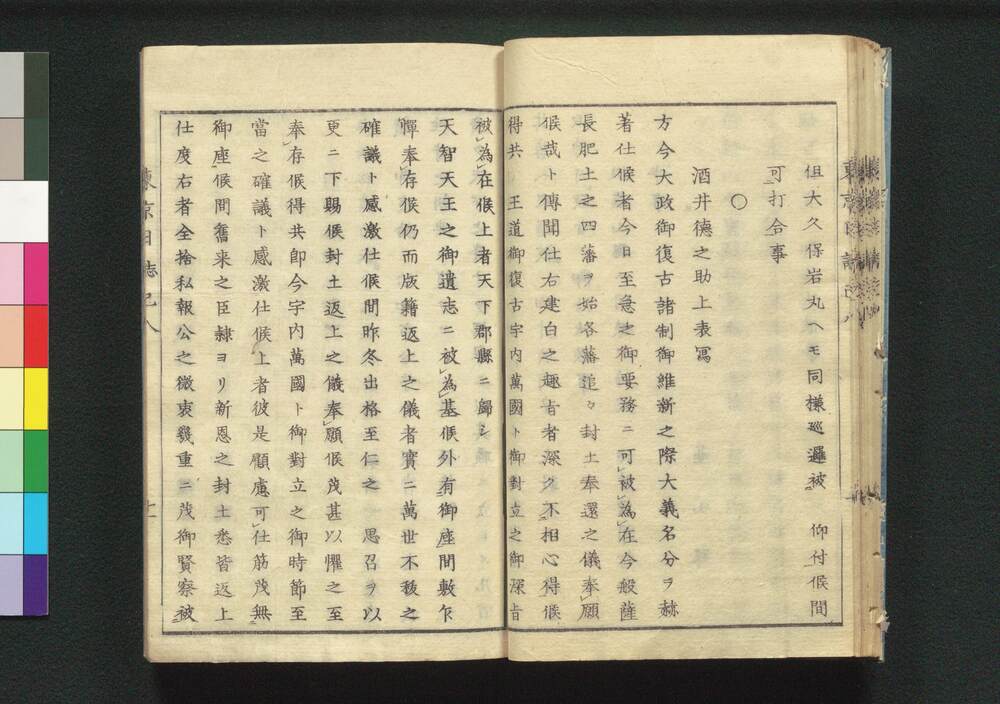 但大久保岩丸ヘモ同様巡邏被　仰付候間
可打合事
〇
酒井徳之助上表冩
方今大政御復古諸制御維新之際大義名分ヲ赫
著仕候者今日至急之御要務ニ可被為在今般薩
長肥土之四藩ヲ始各藩追々封土奉還之儀奉願
候哉ト傳聞仕右建白之趣旨者深ク不相心得候
得共　王道御復古宇内萬國ト御對立之御深旨
被為在候上者天下郡縣ニ歸シ
天智天王之御遺志ニ被為基候外有御座間敷乍
憚奉存候仍而版籍返上之儀者實ニ萬世不抜之
確議ト感激仕候間昨冬出格至仁之　思召ヲ以
更ニ下賜候封土返上之儀奉願候茂甚以懼之至
奉存候得共即今宇内萬國ト御對立之御時節至
當之確議ト感激仕候上者彼是顧慮可仕筋茂無
御座候間舊来之臣隷ヨリ新恩之封土悉皆返上
仕度右者全捨私報公之微衷幾重ニ茂御賢察被
東京日誌己八
十一